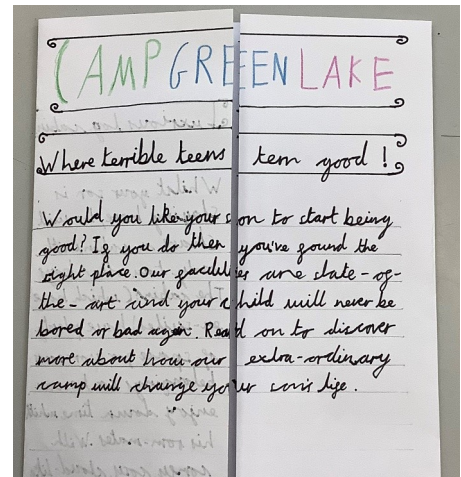 CAMP GREEN LAKE
Where terrible teens tern good!
Would you like your son to start being
good? If you do then you've found the
right place. Our facilities are state-of-
the-art and your child will never be
bored or bad again. Read on to discover
more about how our extra-ordinary
camp will change your son's life.